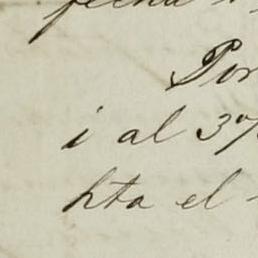 fecha
Por
i al 37
hta el